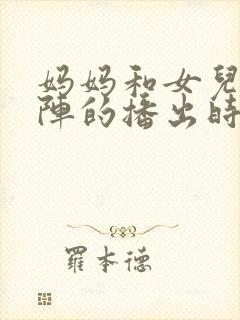 妈妈和女兒
陣的播出時
羅本德